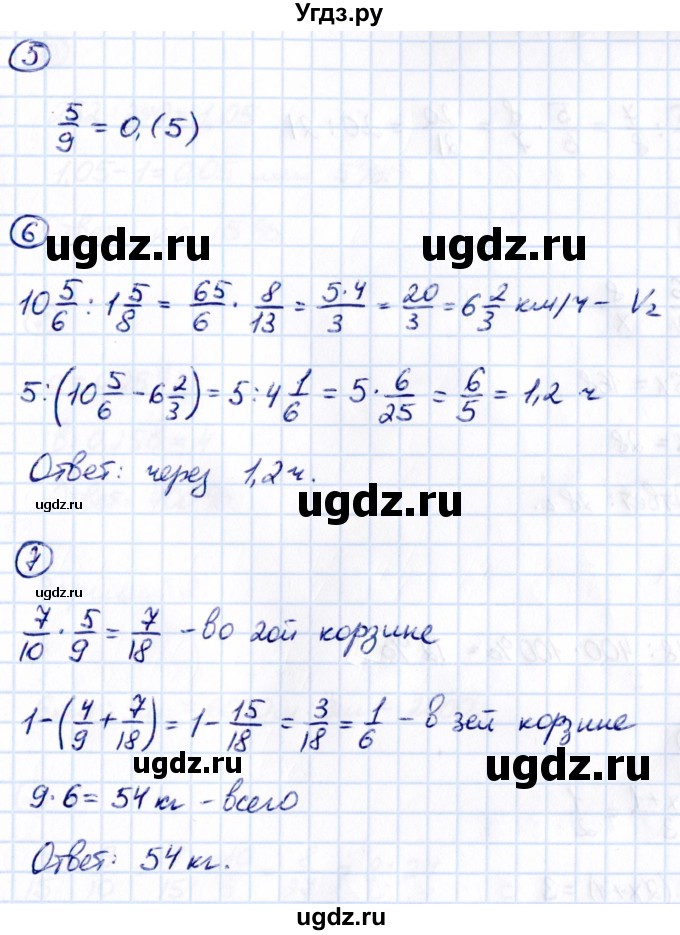 Угдз.ру
5
5/9 = 0,(5)
6
ugdz.ru ugdz.ru
10 5/6 : 1 5/8 = 65/6 · 8/13 = 5·4/3 = 20/3 = 6 2/3 км/ч – V₂
5:(10 5/6 – 6 2/3) = 5:4 1/6 = 5 · 6/25 = 6/5 = 1,2 ч
Ответ: через 1,2 ч.
ugdz.ru
ugdz.ru
7
ugdz.ru
7/10 · 5/9 = 7/18 – во 2ой корзине
1–(4/9 + 7/18) = 1 – 15/18 = 3/18 = 1/6 – в 3ей корзине
ugdz.ru ugdz.ru
9·6 = 54 кг – всего
Ответ: 54 кг.
ugdz.ru